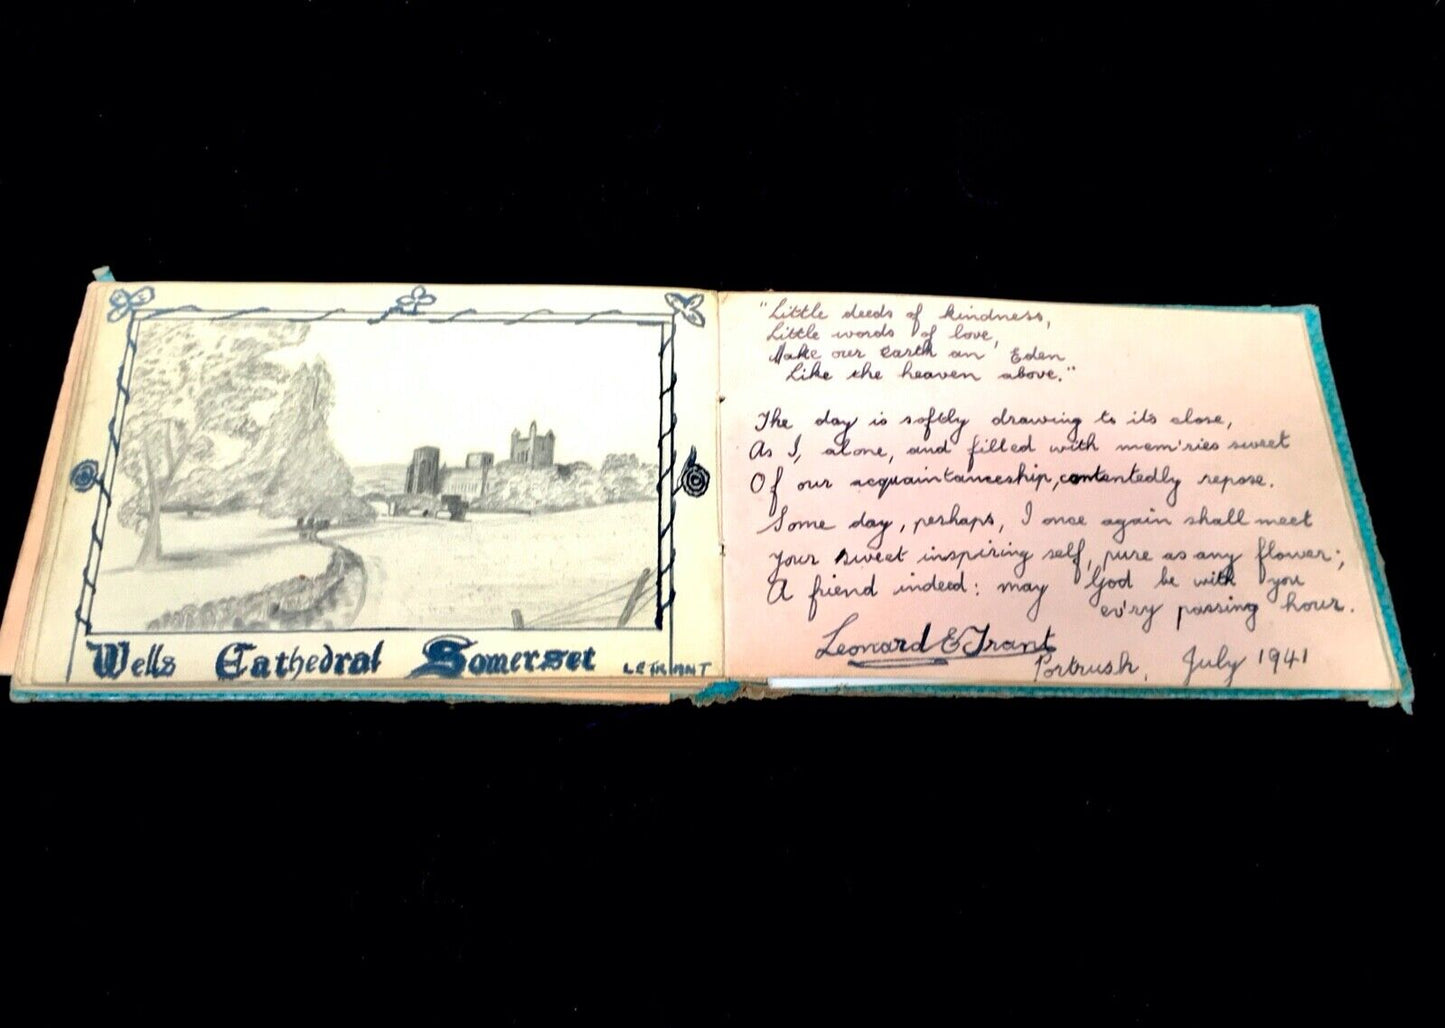 Wells Cathedral Somerset
LETRANT
"Little deeds of kindness,
Little words of love,
Make our Earth an Eden
Like the heaven above."
The day is softly drawing to its close,
As I, alone, and filled with mem'ries sweet
Of our acquaintanceship, contentedly repose.
Some day, perhaps, I once again shall meet
Your sweet inspiring self, pure as any flower;
A friend indeed: may God be with you
ev'ry passing hour.
Leonard E Trant
Portrush, July 1941